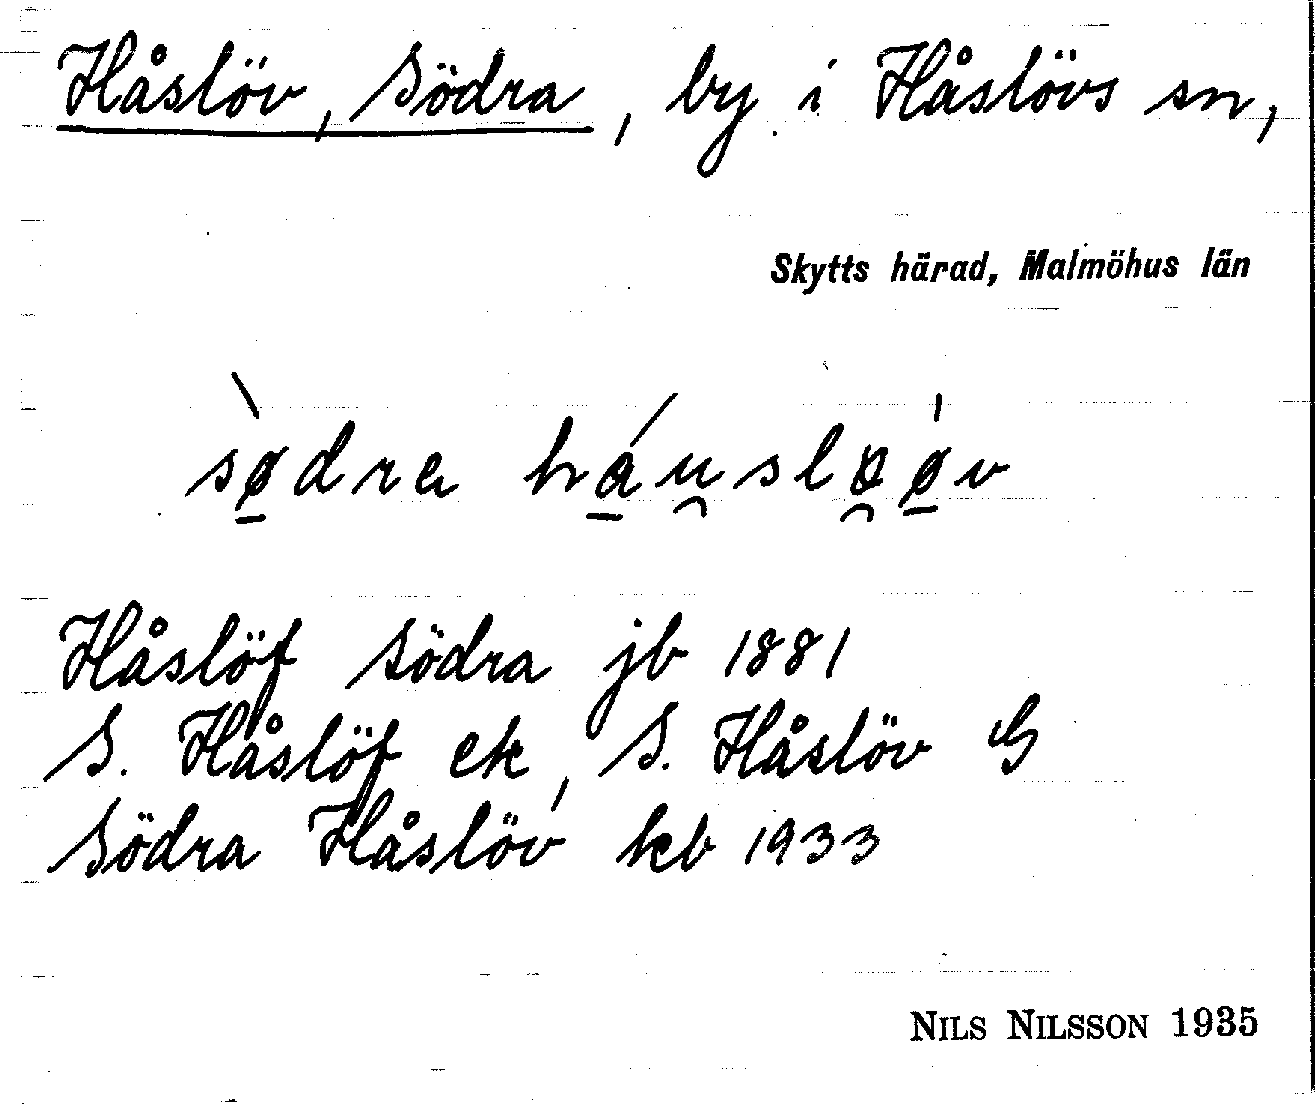 Håslöv, Södra, by i Håslövs sn,
Skytts härad, Malmöhus län
sø̀dra háu̯slo̯øv
Håslöf Södra jb 1881
S. Håslöf ek, S. Håslöv G
Södra Håslöv kb 1933
NILS NILSSON 1935